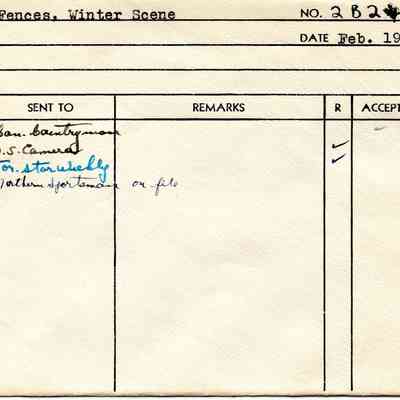 Fences, Winter Scene NO. 2 B 2
DATE Feb. 19
SENT TO REMARKS R ACCEPT
Can. Countryman
U.S. Camera ✓
Tor. Star Weekly ✓
Northern Sportsman on file